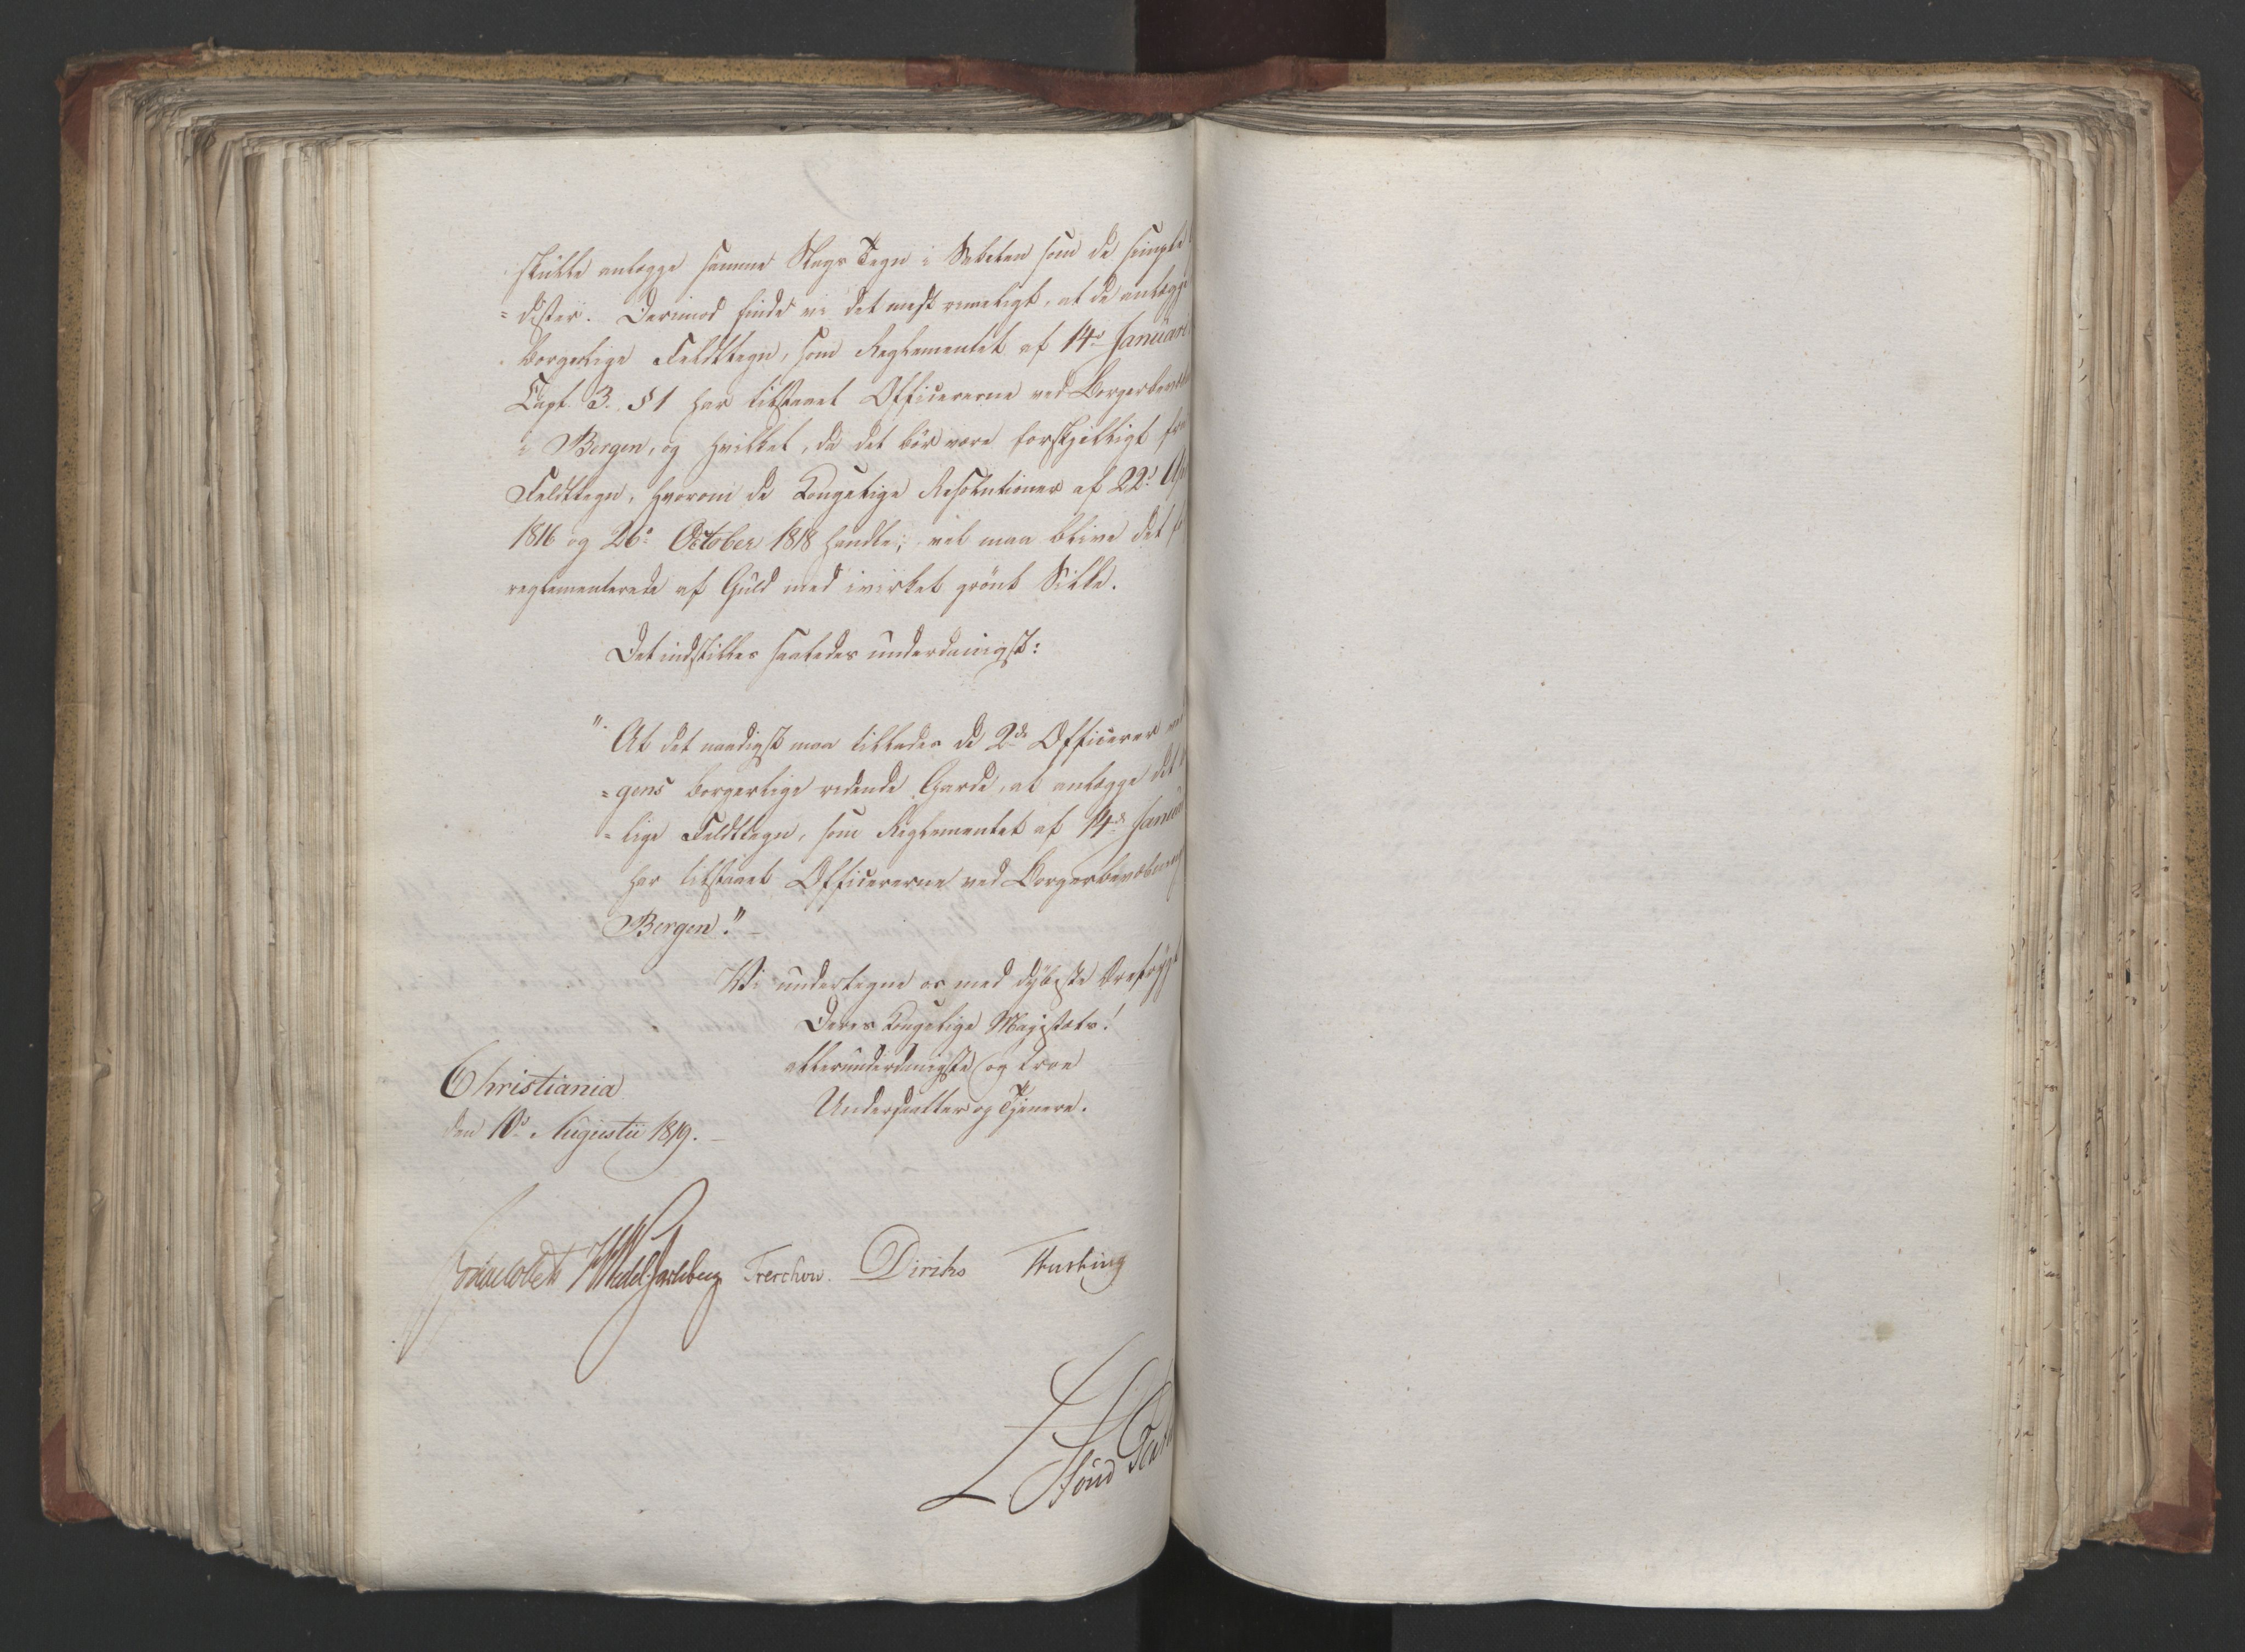 skulde anlægge samme Slags Tegn i Sabelen som de simple
=dister. Derimod finde vi det mest rimeligt, at de anlægge
borgerlige Feldttegn, som Reglementet af 14de Januari
Capt. 3. § 1 har tilstaaet Officererne ved Borgerbevæb
i Bergen, og hvilket, da det bör være forskjelligt fra
Feldttegn, hvorom de Kongelige Resolutioner af 22de
1816 og 26de October 1818 handle, vel maa blive det
reglementerede af Guld med ivirket grönt Silke.
Det indstilles saaledes underdanigst:
"At det naadigst maa tillades de 2de Officerer
=gens borgerlige ridende Garde, at anlægge det
=lige Feldttegn, som Reglementet af 14de Januar
har tilstaaet Officererne ved Borgerbevæbning
Bergen." –
Vi undertegne os med dybeste Ærefrygt
Deres Kongelige Majestæts!
allerunderdanigste og troe
Undersaatter og Tjenere.
Christiania
den 10de Augustii 1819. –
HWedel Jarlsberg Treschow. Diriks